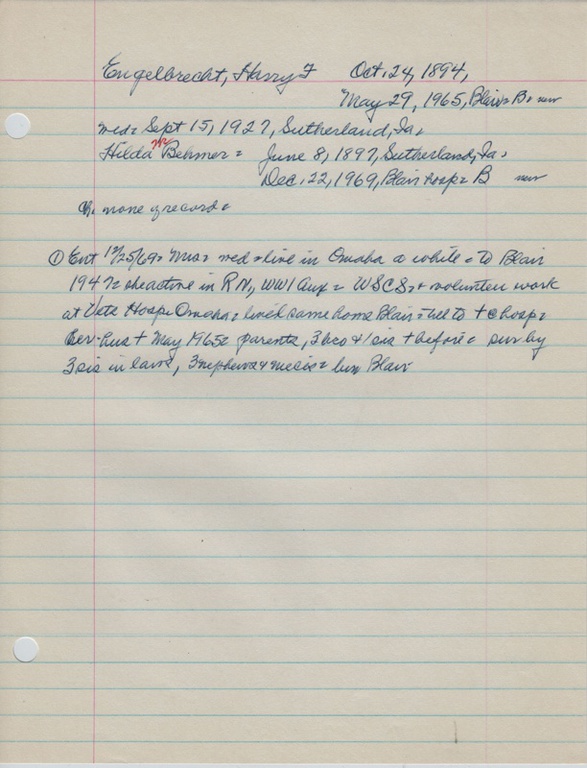 Engelbrecht, Harry F Oct. 24, 1894,
May 29, 1965, Blair = B =
med = Sept 15, 1927, Sutherland, Ia.
Hilda M Behmer = June 8, 1897, Sutherland, Ia.
Dec. 22, 1969, Blair hosp = B
Ch. none of record =
① Ent 12/25/69 = Mrs = med = live in Omaha a while = to Blair
1947 = she active in RN, WW1 Aux = WSCS = + volunteer work
at Vets Hosp. Omaha = lived same home Blair = till to + @ hosp =
her hus + May 1965 = parents, 3 bro & 1 sis + before = surv by
3 sis in laws, 3 nephews & nieces = bur Blair